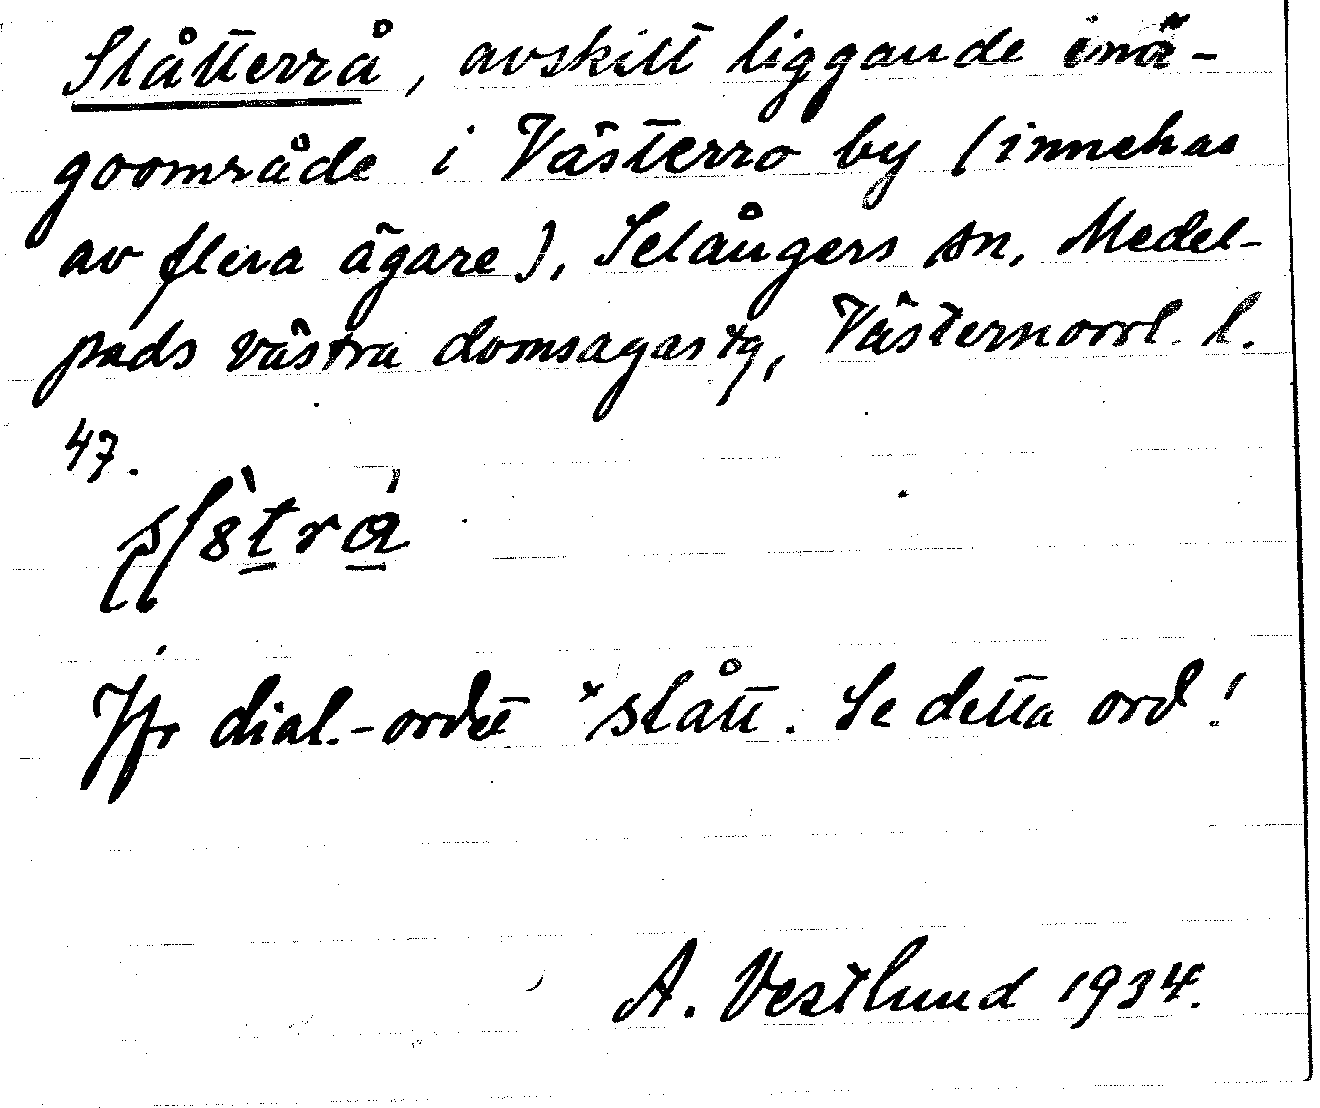 Slåtterrå, avskilt liggande inä-
goområde i Västerro by (innehas
av flera ägare), Selångers sn, Medel-
pads västra domsagas tg, Västernorrl. l.
47.
Jfr dial.-ordet *slått. Se detta ord!
A. Vestlund 1934.